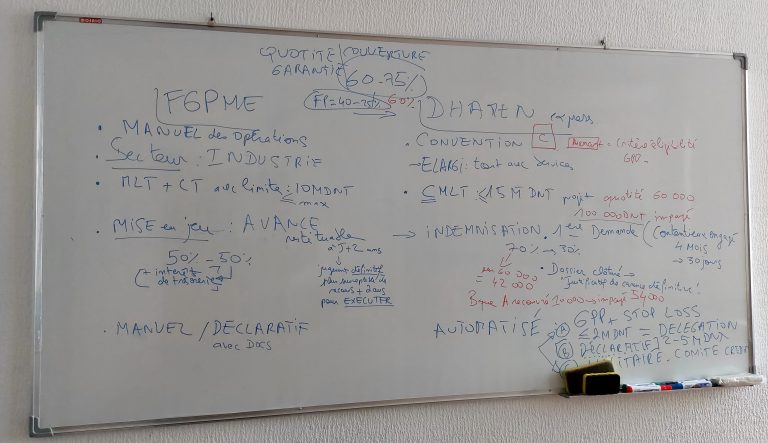 QUOTITE/COUVERTURE
GARANTIE 60-75%
FP=40-25% 60%
FGPME
• MANUEL des Opérations
• Secteur : INDUSTRIE
• MLT + CT avec limite : 10MDNT
max
• MISE en jeu : AVANCE
restituable
à J+2 ans
50% - 50%
(+ intérêts
de trésorerie)
→ jugement définitif
plus susceptible de
recours + 2 ans
pour EXECUTER
• MANUEL/DECLARATIF
avec DOCS
DHAMEN express
• CONVENTION C = Critère éligibilité
GPP
→ ELARGI : tout avec services
• CMLT : ≤ 15 M DNT projet quotité 60 000
100 000DNT impayé
→ INDEMNISATION. 1ère Demande (Contentieux engagé
4 MOIS
→ 30 jours
70% → 30%
60 000
= 42 000
• Dossier clôturé →
Justificatif de carence définitive!
Bque A recouvré 10 000 → impayé 54 000
AUTOMATISÉ
GPP + STOP LOSS
A ≤ 2MDNT = DELEGATION
B DECLARATIF] 2-5 MDNT
COMITE CREDIT